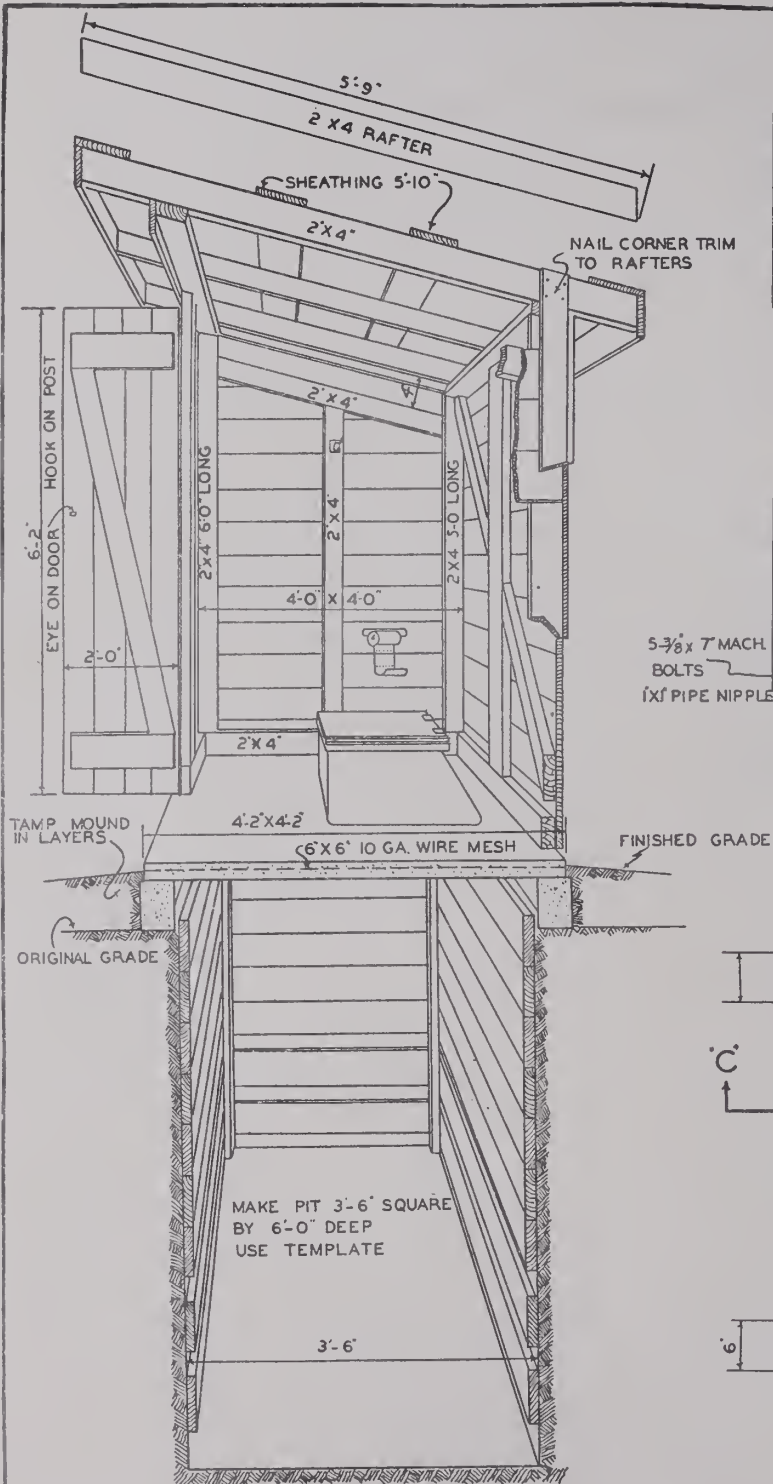 5'-9"
2 X4 RAFTER
SHEATHING 5'-10"
2"X4"
NAIL CORNER TRIM
TO RAFTERS
4"
2"X4"
HOOK ON POST
EYE ON DOOR
6'-2"
2"X4" 6'-0" LONG
2"X4"
2X4 5-0 LONG
4'-0" X 4'-0"
2'-0"
5-3/8" x 7" MACH.
BOLTS
1"X1" PIPE NIPPLE
2"X4"
TAMP MOUND
IN LAYERS
4'-2"X4'-2"
6"X6" 10 GA. WIRE MESH
FINISHED GRADE
ORIGINAL GRADE
"C"
MAKE PIT 3'-6" SQUARE
BY 6'-0" DEEP
USE TEMPLATE
3'-6"
6"